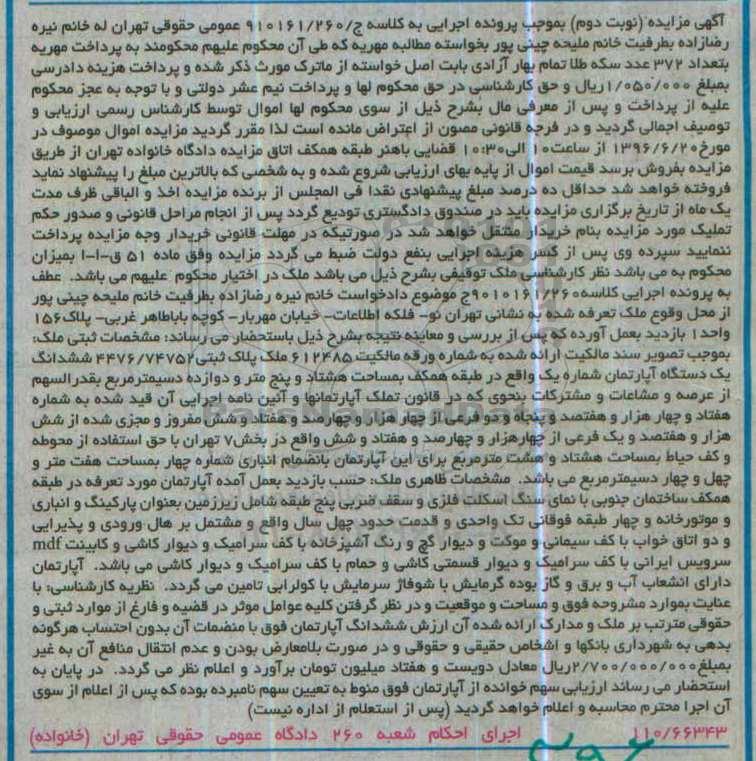 آگهی مزایده (نوبت دوم) بموجب پرونده اجرایی به کلاسه ج/۹۱۰۱۶۱/۲۶۰ عمومی حقوقی تهران له خانم نیره
رضازاده بطرفیت خانم ملیحه چینی پور بخواسته مطالبه مهریه که طی آن محکوم علیهم محکومند به پرداخت مهریه
بتعداد ۳۷۲ عدد سکه طلا تمام بهار آزادی بابت اصل خواسته از ماترک مورث ذکر شده و پرداخت هزینه دادرسی
بمبلغ ۱/۰۵۰/۰۰۰ریال و حق کارشناسی در حق محکوم لها و پرداخت نیم عشر دولتی و با توجه به عجز محکوم
علیه از پرداخت و پس از معرفی مال بشرح ذیل از سوی محکوم لها اموال توسط کارشناس رسمی ارزیابی و
توصیف اجمالی گردید و در فرجه قانونی مصون از اعتراض مانده است لذا مقرر گردید مزایده اموال موصوف در
مورخ۱۳۹۶/۶/۲۰ از ساعت۱۰ الی۱۰:۳۰ قضایی باهنر طبقه همکف اتاق مزایده دادگاه خانواده تهران از طریق
مزایده بفروش برسد قیمت اموال از پایه بهای ارزیابی شروع شده و به شخصی که بالاترین مبلغ را پیشنهاد نماید
فروخته خواهد شد حداقل ده درصد مبلغ پیشنهادی نقدا فی المجلس از برنده مزایده اخذ و الباقی ظرف مدت
یک ماه از تاریخ برگزاری مزایده باید در صندوق دادگستری تودیع گردد پس از انجام مراحل قانونی و صدور حکم
تملیک مورد مزایده بنام خریدار منتقل خواهد شد در صورتیکه در مهلت قانونی خریدار وجه مزایده پرداخت
ننمایید سپرده وی پس از کسر هزینه اجرایی بنفع دولت ضبط می گردد مزایده وفق ماده ۵۱ ق-ا-ا بمیزان
محکوم به می باشد نظر کارشناسی ملک توقیفی بشرح ذیل می باشد ملک در اختیار محکوم علیهم می باشد. عطف
به پرونده اجرایی کلاسه۹۰۱۰۱۶۱/۲۶۰ج موضوع دادخواست خانم نیره رضازاده بطرفیت خانم ملیحه چینی پور
از محل وقوع ملک تعرفه شده به نشانی تهران نو- فلکه اطلاعات- خیابان مهربار- کوچه باباطاهر غربی- پلاک۱۵۶
واحد۱ بازدید بعمل آورده که پس از بررسی و معاینه نتیجه بشرح ذیل باستحضار می رساند: مشخصات ثبتی ملک:
بموجب تصویر سند مالکیت ارائه شده به شماره ورقه مالکیت ۶۱۲۴۸۵ ملک پلاک ثبتی۴۴۷۶/۷۴۷۵۲ ششدانگ
یک دستگاه آپارتمان شماره یک واقع در طبقه همکف بمساحت هشتاد و پنج متر و دوازده دسیمترمربع بقدرالسهم
از عرصه و مشاعات و مشترکات بنحوی که در قانون تملک آپارتمانها و آئین نامه اجرایی آن قید شده به شماره
هفتاد و چهار هزار و هفتصد و پنجاه و دو فرعی از چهار هزار و چهارصد و هفتاد و شش مفروز و مجزی شده از شش
هزار و هفتصد و یک فرعی از چهارهزار و چهارصد و هفتاد و شش واقع در بخش۷ تهران با حق استفاده از محوطه
و کف حیاط بمساحت هشتاد و هشت مترمربع برای این آپارتمان بانضمام انباری شماره چهار بمساحت هفت متر و
چهل و چهار دسیمترمربع می باشد. مشخصات ظاهری ملک: حسب بازدید بعمل آمده آپارتمان مورد تعرفه در طبقه
همکف ساختمان جنوبی با نمای سنگ اسکلت فلزی و سقف ضربی پنج طبقه شامل زیرزمین بعنوان پارکینگ و انباری
و موتورخانه و چهار طبقه فوقانی تک واحدی و قدمت حدود چهل سال واقع و مشتمل بر هال ورودی و پذیرایی
و دو اتاق خواب با کف سیمانی و موکت و دیوار گچ و رنگ آشپزخانه با کف سرامیک و دیوار کاشی و کابینت mdf
سرویس ایرانی با کف سرامیک و دیوار قسمتی کاشی و حمام با کف سرامیک و دیوار کاشی می باشد. آپارتمان
دارای انشعاب آب و برق و گاز بوده گرمایش با شوفاژ سرمایش با کولرابی تامین می گردد. نظریه کارشناسی: با
عنایت بموارد مشروحه فوق و مساحت و موقعیت و در نظر گرفتن کلیه عوامل موثر در قضیه و فارغ از موارد ثبتی و
حقوقی مترتب بر ملک و مدارک ارائه شده آن ارزش ششدانگ آپارتمان فوق با منضمات آن بدون احتساب هرگونه
بدهی به شهرداری بانکها و اشخاص حقیقی و حقوقی و در صورت بلامعارض بودن و عدم انتقال منافع آن به غیر
بمبلغ۲/۷۰۰/۰۰۰/۰۰۰ریال معادل دویست و هفتاد میلیون تومان برآورد و اعلام نظر می گردد. در پایان به
استحضار می رساند ارزیابی سهم خوانده از آپارتمان فوق منوط به تعیین سهم نامبرده بوده که پس از اعلام از سوی
آن اجرا محترم محاسبه و اعلام خواهد گردید (پس از استعلام از اداره نیست)
۱۱۰/۶۶۳۴۳ اجرای احکام شعبه ۲۶۰ دادگاه عمومی حقوقی تهران (خانواده)